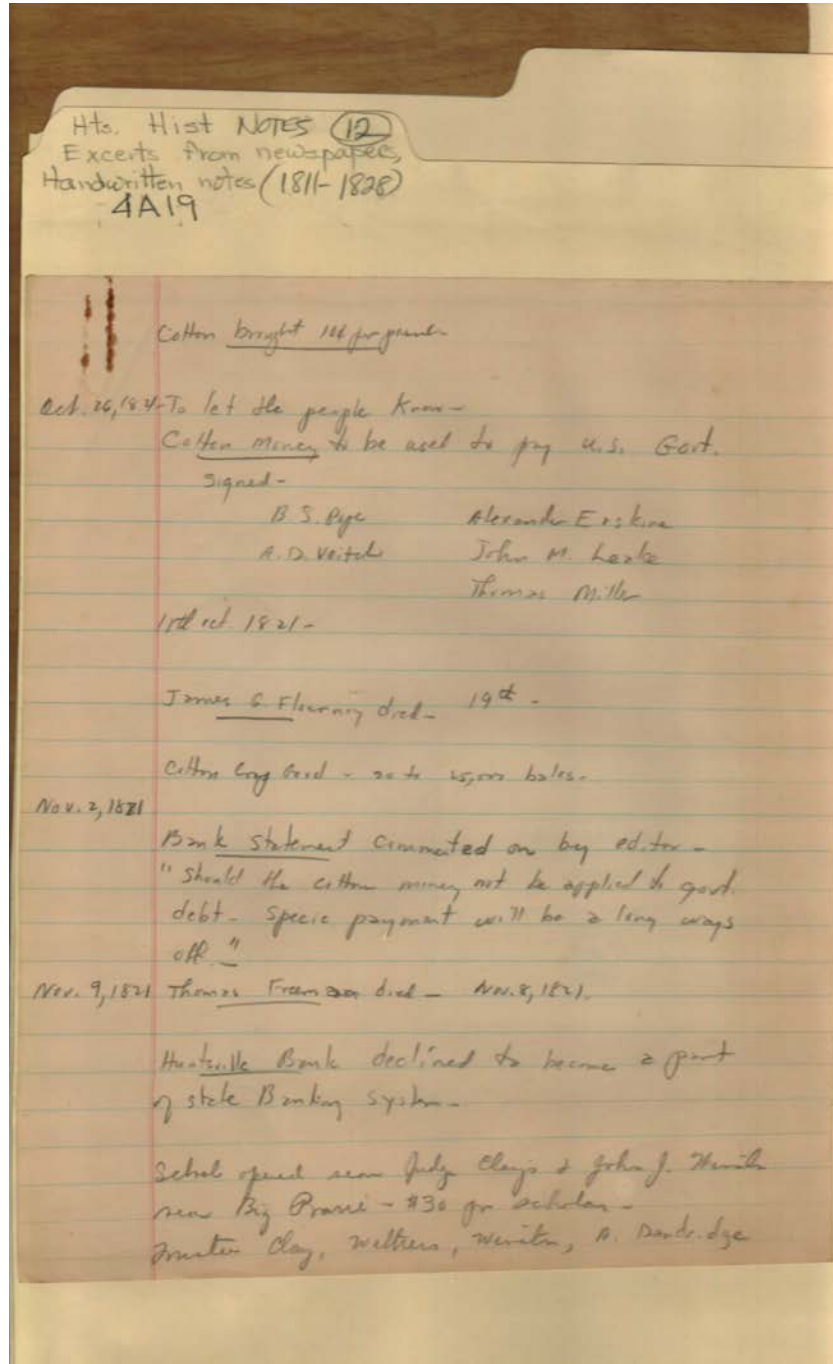 Hts. Hist NOTES (12)
Excerts from newspapers,
Handwritten notes (1811-1828)
4A19
Cotton brought per pound-
Oct. 26, 1821-To let the people know-
Cotton money to be used to pay U.S. Govt.
signed-
B. S. Pope Alexander Erskine
A. D. Veitch John M. Leake
Thomas Miller
oct. 1821-
James G Flournoy died- 19th-
Cotton crop Good - 20 to 25,000 bales-
Nov. 2, 1821
Bank statement commented on by editor-
"Should the cotton money not be applied to govt.
debt- specie payment will be a long ways
off."
Nov. 9, 1821 Thomas Freeman died- Nov. 8, 1821.
Huntsville Bank declined to become a part
of state Banking System-
School opened near Judge Clay's & John J. Winston
near Big Prarie - $30 per scholar-
Trustee Clay, Withers, Winston, A. Dandridge